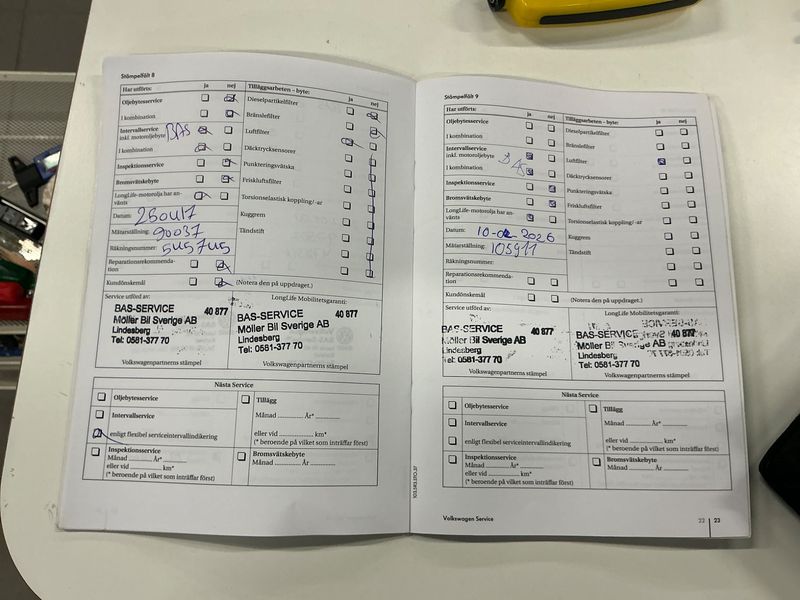 Stämpelfält 8
Har utförts: ja nej
Oljebytesservice
I kombination
Intervallservice
inkl. motoroljebyte BAS
I kombination
Inspektionsservice
Bromsvätskebyte
LongLife-motorolja har an-
vänts
Datum: 250417
Mätarställning: 90037
Räkningsnummer: 545745
Reparationsrekommenda-
tion
Kundönskemål
Tilläggsarbeten – byte: ja nej
Dieselpartikelfilter
Bränslefilter
Luftfilter
Däcktryckssensorer
Punkteringsvätska
Friskluftsfilter
Torsionselastisk koppling/-ar
Kuggrem
Tändstift
(Notera den på uppdraget.)
Service utförd av:
BAS-SERVICE 40 877
Möller Bil Sverige AB
Lindesberg
Tel: 0581-377 70
LongLife Mobilitetsgaranti:
BAS-SERVICE 40 877
Möller Bil Sverige AB
Lindesberg
Tel: 0581-377 70
Volkswagenpartnerns stämpel
Volkswagenpartnerns stämpel
Nästa Service
Oljebytesservice
Intervallservice
enligt flexibel serviceintervallindikering
Tillägg
Månad ............ År* ............
eller vid ............ km*
(* beroende på vilket som inträffar först)
Inspektionsservice
Månad ............ År* ............
eller vid ............ km*
(* beroende på vilket som inträffar först)
Bromsvätskebyte
Månad ............ År ............
Stämpelfält 9
Har utförts: ja nej
Oljebytesservice
I kombination
Intervallservice
inkl. motoroljebyte
I kombination
Inspektionsservice
Bromsvätskebyte
LongLife-motorolja har an-
vänts
Datum:
Mätarställning: 105911
Räkningsnummer:
Reparationsrekommenda-
tion
Kundönskemål
Tilläggsarbeten – byte: ja nej
Dieselpartikelfilter
Bränslefilter
Luftfilter
Däcktryckssensorer
Punkteringsvätska
Friskluftsfilter
Torsionselastisk koppling/-ar
Kuggrem
Tändstift
(Notera den på uppdraget.)
Service utförd av:
BAS-SERVICE 40 877
Möller Bil Sverige AB
Lindesberg
Tel: 0581-377 70
LongLife Mobilitetsgaranti:
BAS-SERVICE
Möller Bil Sverige AB
Lindesberg
Tel: 0581-377 70
Volkswagenpartnerns stämpel
Volkswagenpartnerns stämpel
Nästa Service
Oljebytesservice
Intervallservice
enligt flexibel serviceintervallindikering
Tillägg
Månad ............ År* ............
eller vid ............ km*
(* beroende på vilket som inträffar först)
Inspektionsservice
Månad ............ År* ............
eller vid ............ km*
(* beroende på vilket som inträffar först)
Bromsvätskebyte
Månad ............ År ............
Volkswagen Service
22 23